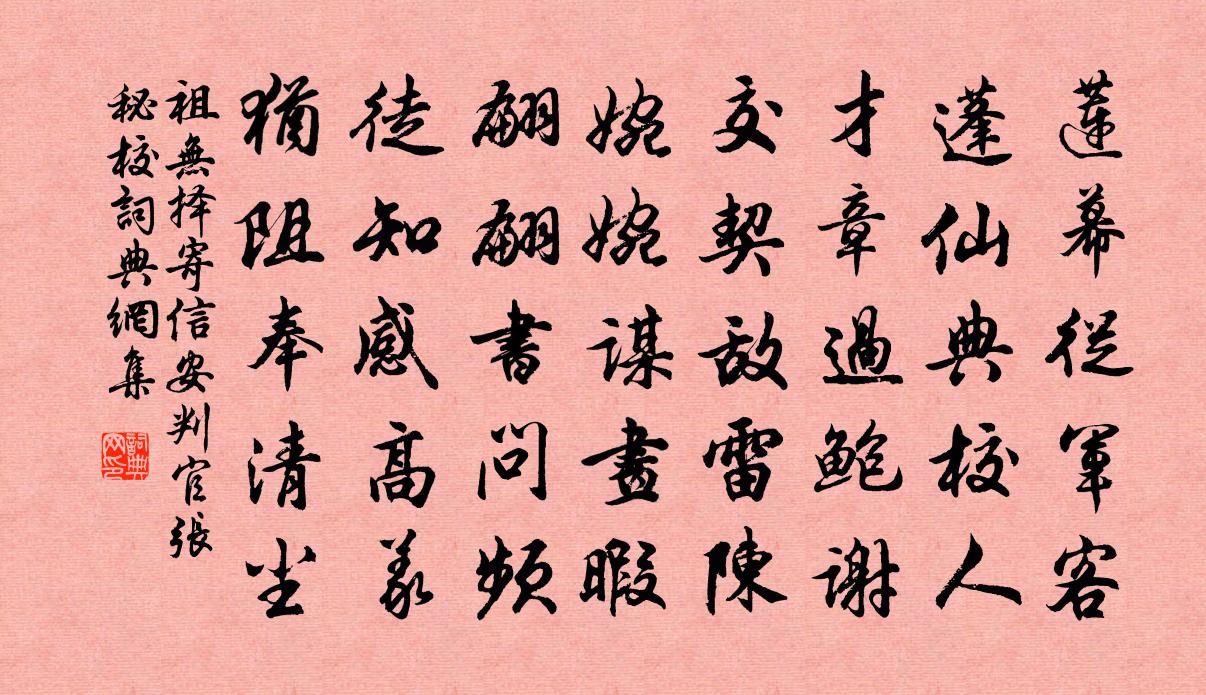 蓮幕從軍客
蓬仙典校人
才章過鮑謝
交契敵雷陳
婉婉謀畫暇
翩翩書問頻
徒知感高義
猶阻奉清尘
祖無择寄信安判官張
秘校詞典網集
詞典
网印